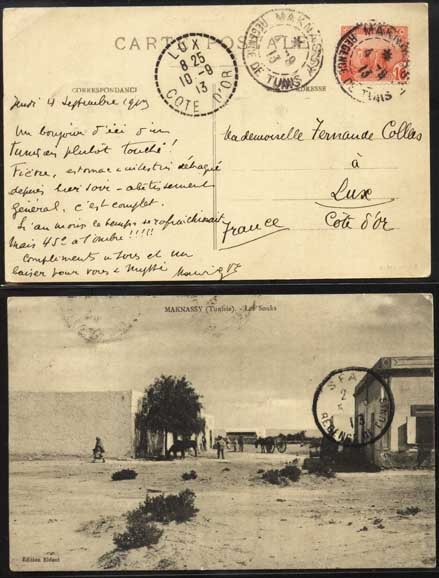 CARTE POSTALE
CORRESPONDANCE
ADRESSE
LUX
8 25
10 - 9
13
COTE D'OR
MAKNASSY
REGENCE DE TUNIS
MAKNASSY
REGENCE DE TUNIS
Jeudi 4 Septembre 1913
Un bonjour d'ici d'un
Tunisien plutôt touché !
Fièvre, estomac et intestins détraqués
depuis hier soir - abrutissement
général, c'est complet.
Si au moins le temps se rafraîchissait
Mais 45° à l'ombre !!!!!
Compliments à tous et un
baiser pour vous
Mademoiselle Fernande Collas
à
Lux
Côte d'Or
France
MAKNASSY (Tunisie). - Les Souks
SFAX
REGENCE TUNIS
Edition